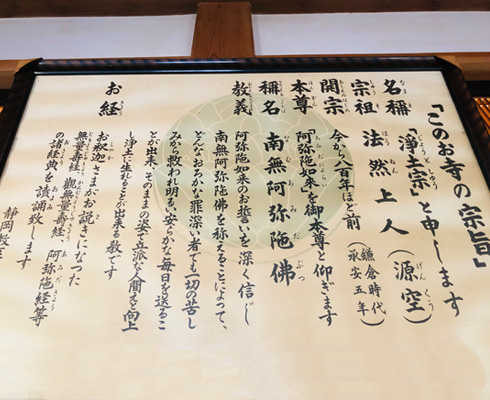 「このお寺の宗旨」
名稱 「浄土宗」と申します
宗祖 法然上人(源空)
開宗 今から八百年ほど前(鎌倉時代 承安五年)
本尊 「阿弥陀如来」を御本尊と仰ぎます
稱名 南無阿弥陀佛
教義 阿弥陀如来のお誓いを深く信じ
南無阿弥陀佛を称えることによって、
どんなおろかな罪深い者でも一切の苦し
みから救われ明るい安らかな毎日を送るこ
とが出来、そのままの姿で立派な人間え向上
し浄土に生れることが出来る教です
お経 お釈迦さまがお説きになった
無量壽経、觀無量壽経、阿弥陀経等
の諸経典を讀誦致します
静岡教